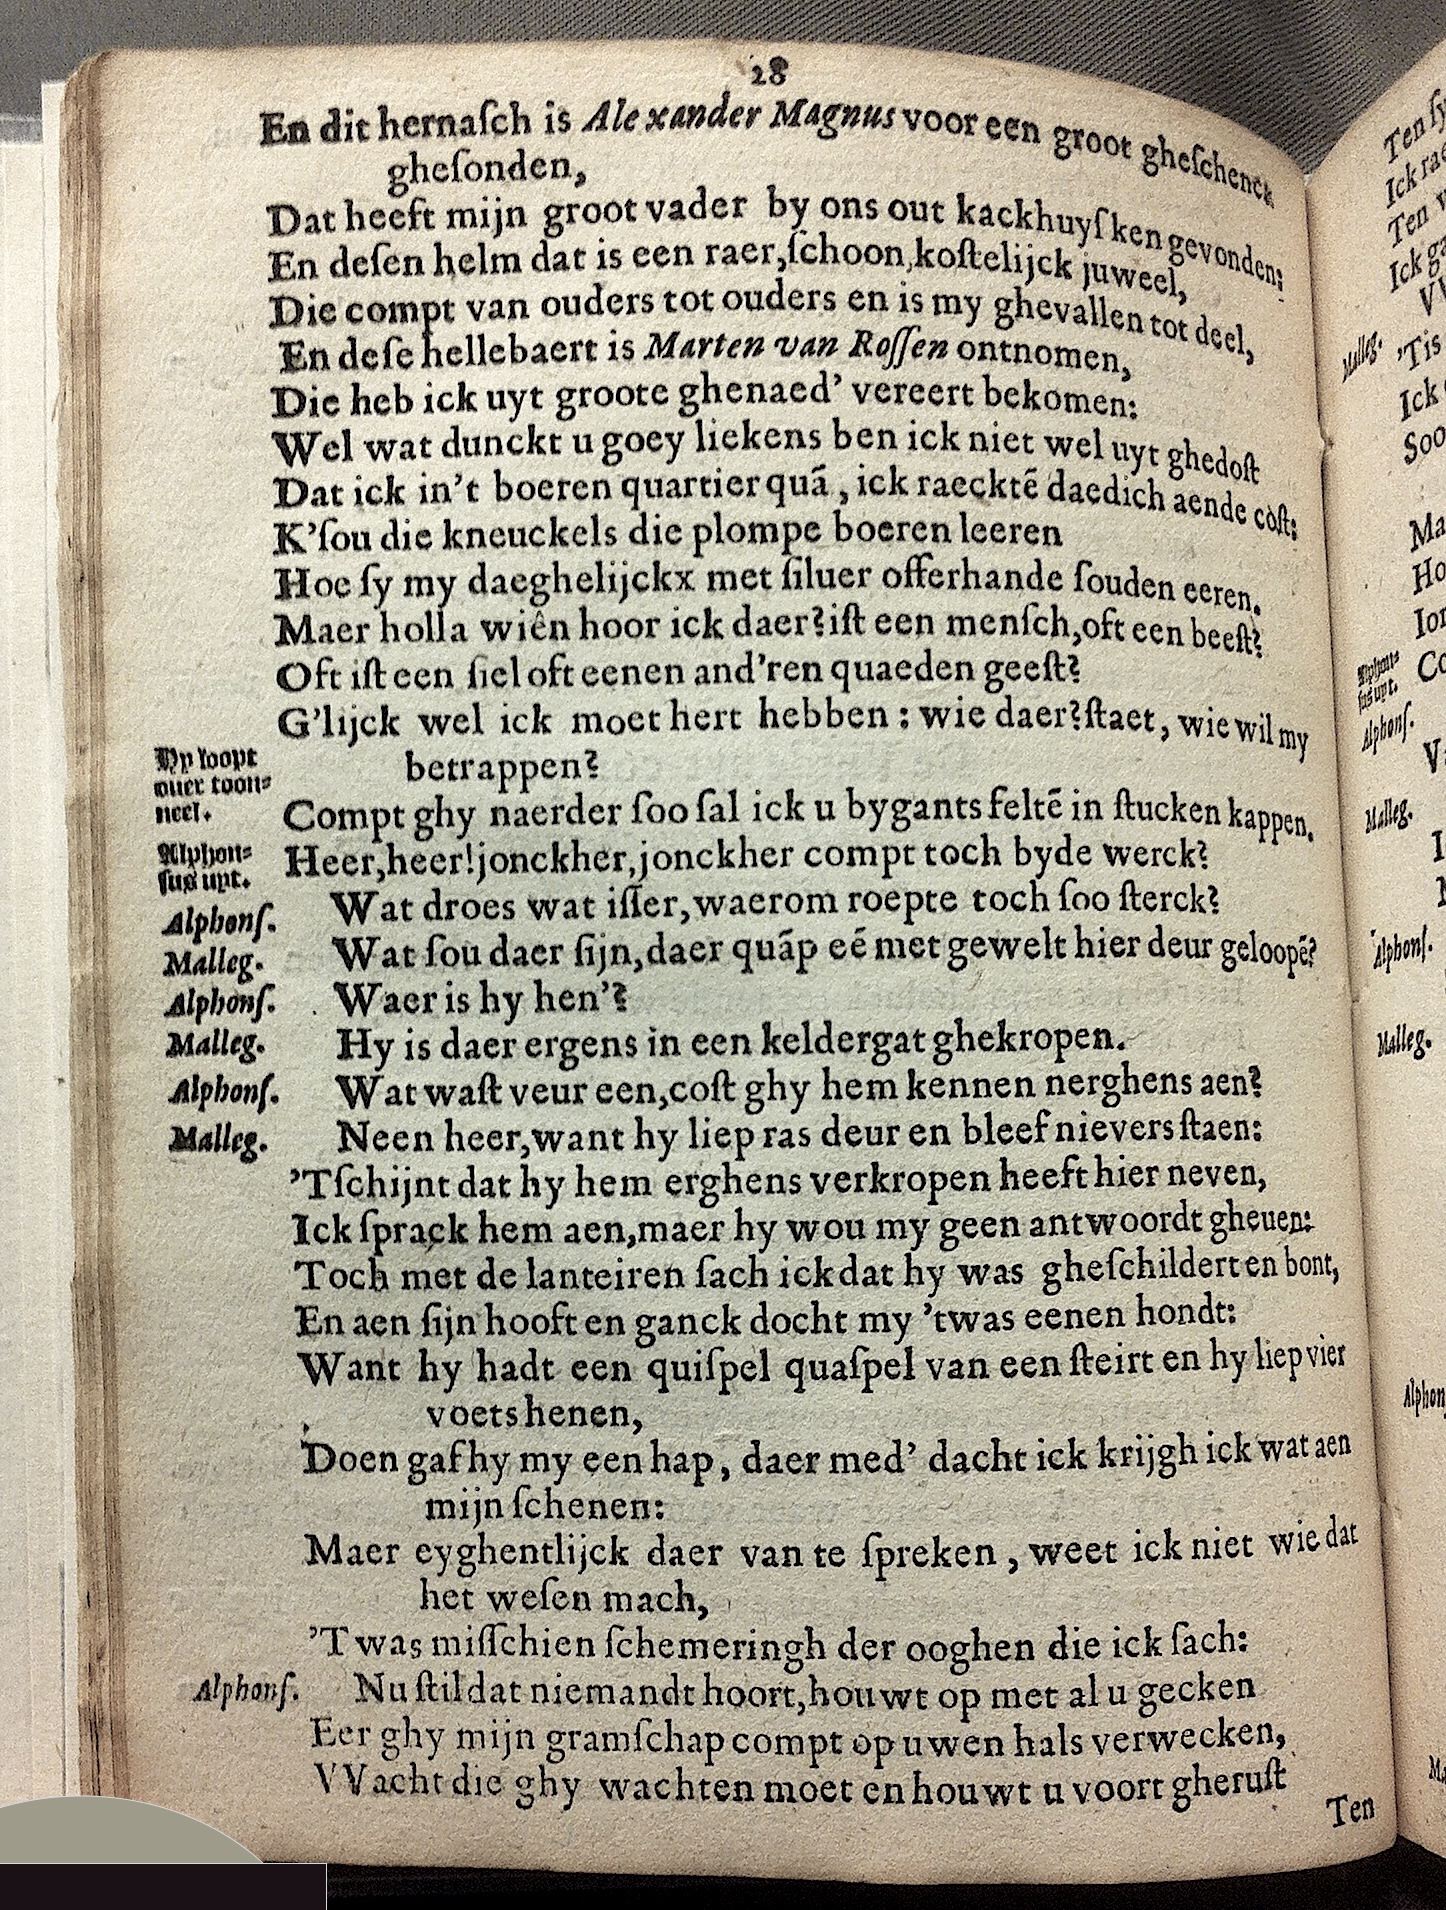 28
En dit hernasch is Alexander Magnus voor een groot gheschenck
ghesonden,
Dat heeft mijn groot vader by ons out kackhuysken gevonden:
En desen helm dat is een raer, schoon, kostelijck juweel,
Die compt van ouders tot ouders en is my ghevallen tot deel,
En dese hellebaert is Marten van Rossen ontnomen,
Die heb ick uyt groote ghenaed' vereert bekomen:
Wel wat dunckt u goey liekens ben ick niet wel uyt ghedost
Dat ick in't boeren quartier quã, ick raecktẽ daedich aende cost:
K'sou die kneuckels die plompe boeren leeren
Hoe sy my daeghelijckx met siluer offerhande souden eeren.
Maer holla wiên hoor ick daer? ist een mensch, oft een beest?
Oft ist een siel oft eenen and'ren quaeden geest?
G'lijck wel ick moet hert hebben: wie daer? staet, wie wil my
betrappen?
Hy loopt
over toon=
neel.
Compt ghy naerder soo sal ick u bygants feltẽ in stucken kappen.
Heer, heer! jonckher, jonckher compt toch byde werck?
Alphon=
sus uyt.
Alphons. Wat droes wat isser, waerom roepte toch soo sterck?
Malleg. Wat sou daer sijn, daer quãp eẽ met gewelt hier deur geloopẽ?
Alphons. Waer is hy hen'?
Malleg. Hy is daer ergens in een keldergat ghekropen.
Alphons. Wat wast veur een, cost ghy hem kennen nerghens aen?
Malleg. Neen heer, want hy liep ras deur en bleef nievers staen:
'Tschijnt dat hy hem erghens verkropen heeft hier neven,
Ick sprack hem aen, maer hy wou my geen antwoordt gheuen:
Toch met de lanteiren sach ick dat hy was gheschildert en bont,
En aen sijn hooft en ganck docht my 'twas eenen hondt:
Want hy hadt een quispel quaspel van een steirt en hy liep vier
voets henen,
Doen gaf hy my een hap, daer med' dacht ick krijgh ick wat aen
mijn schenen:
Maer eyghentlijck daer van te spreken, weet ick niet wie dat
het wesen mach,
'Twas misschien schemeringh der ooghen die ick sach:
Alphons. Nu stil dat niemandt hoort, houwt op met al u gecken
Eer ghy mijn gramschap compt op uwen hals verwecken,
VVacht die ghy wachten moet en houwt u voort gherust
Ten